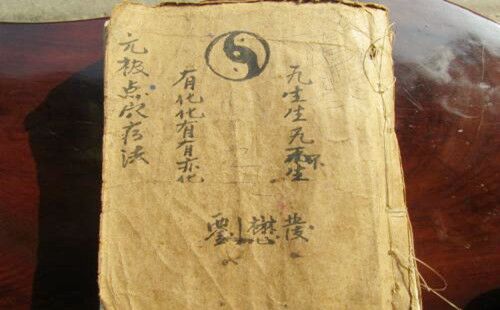 无生生无不生
有化化有有亦化
元极点穴疗法
劉懋